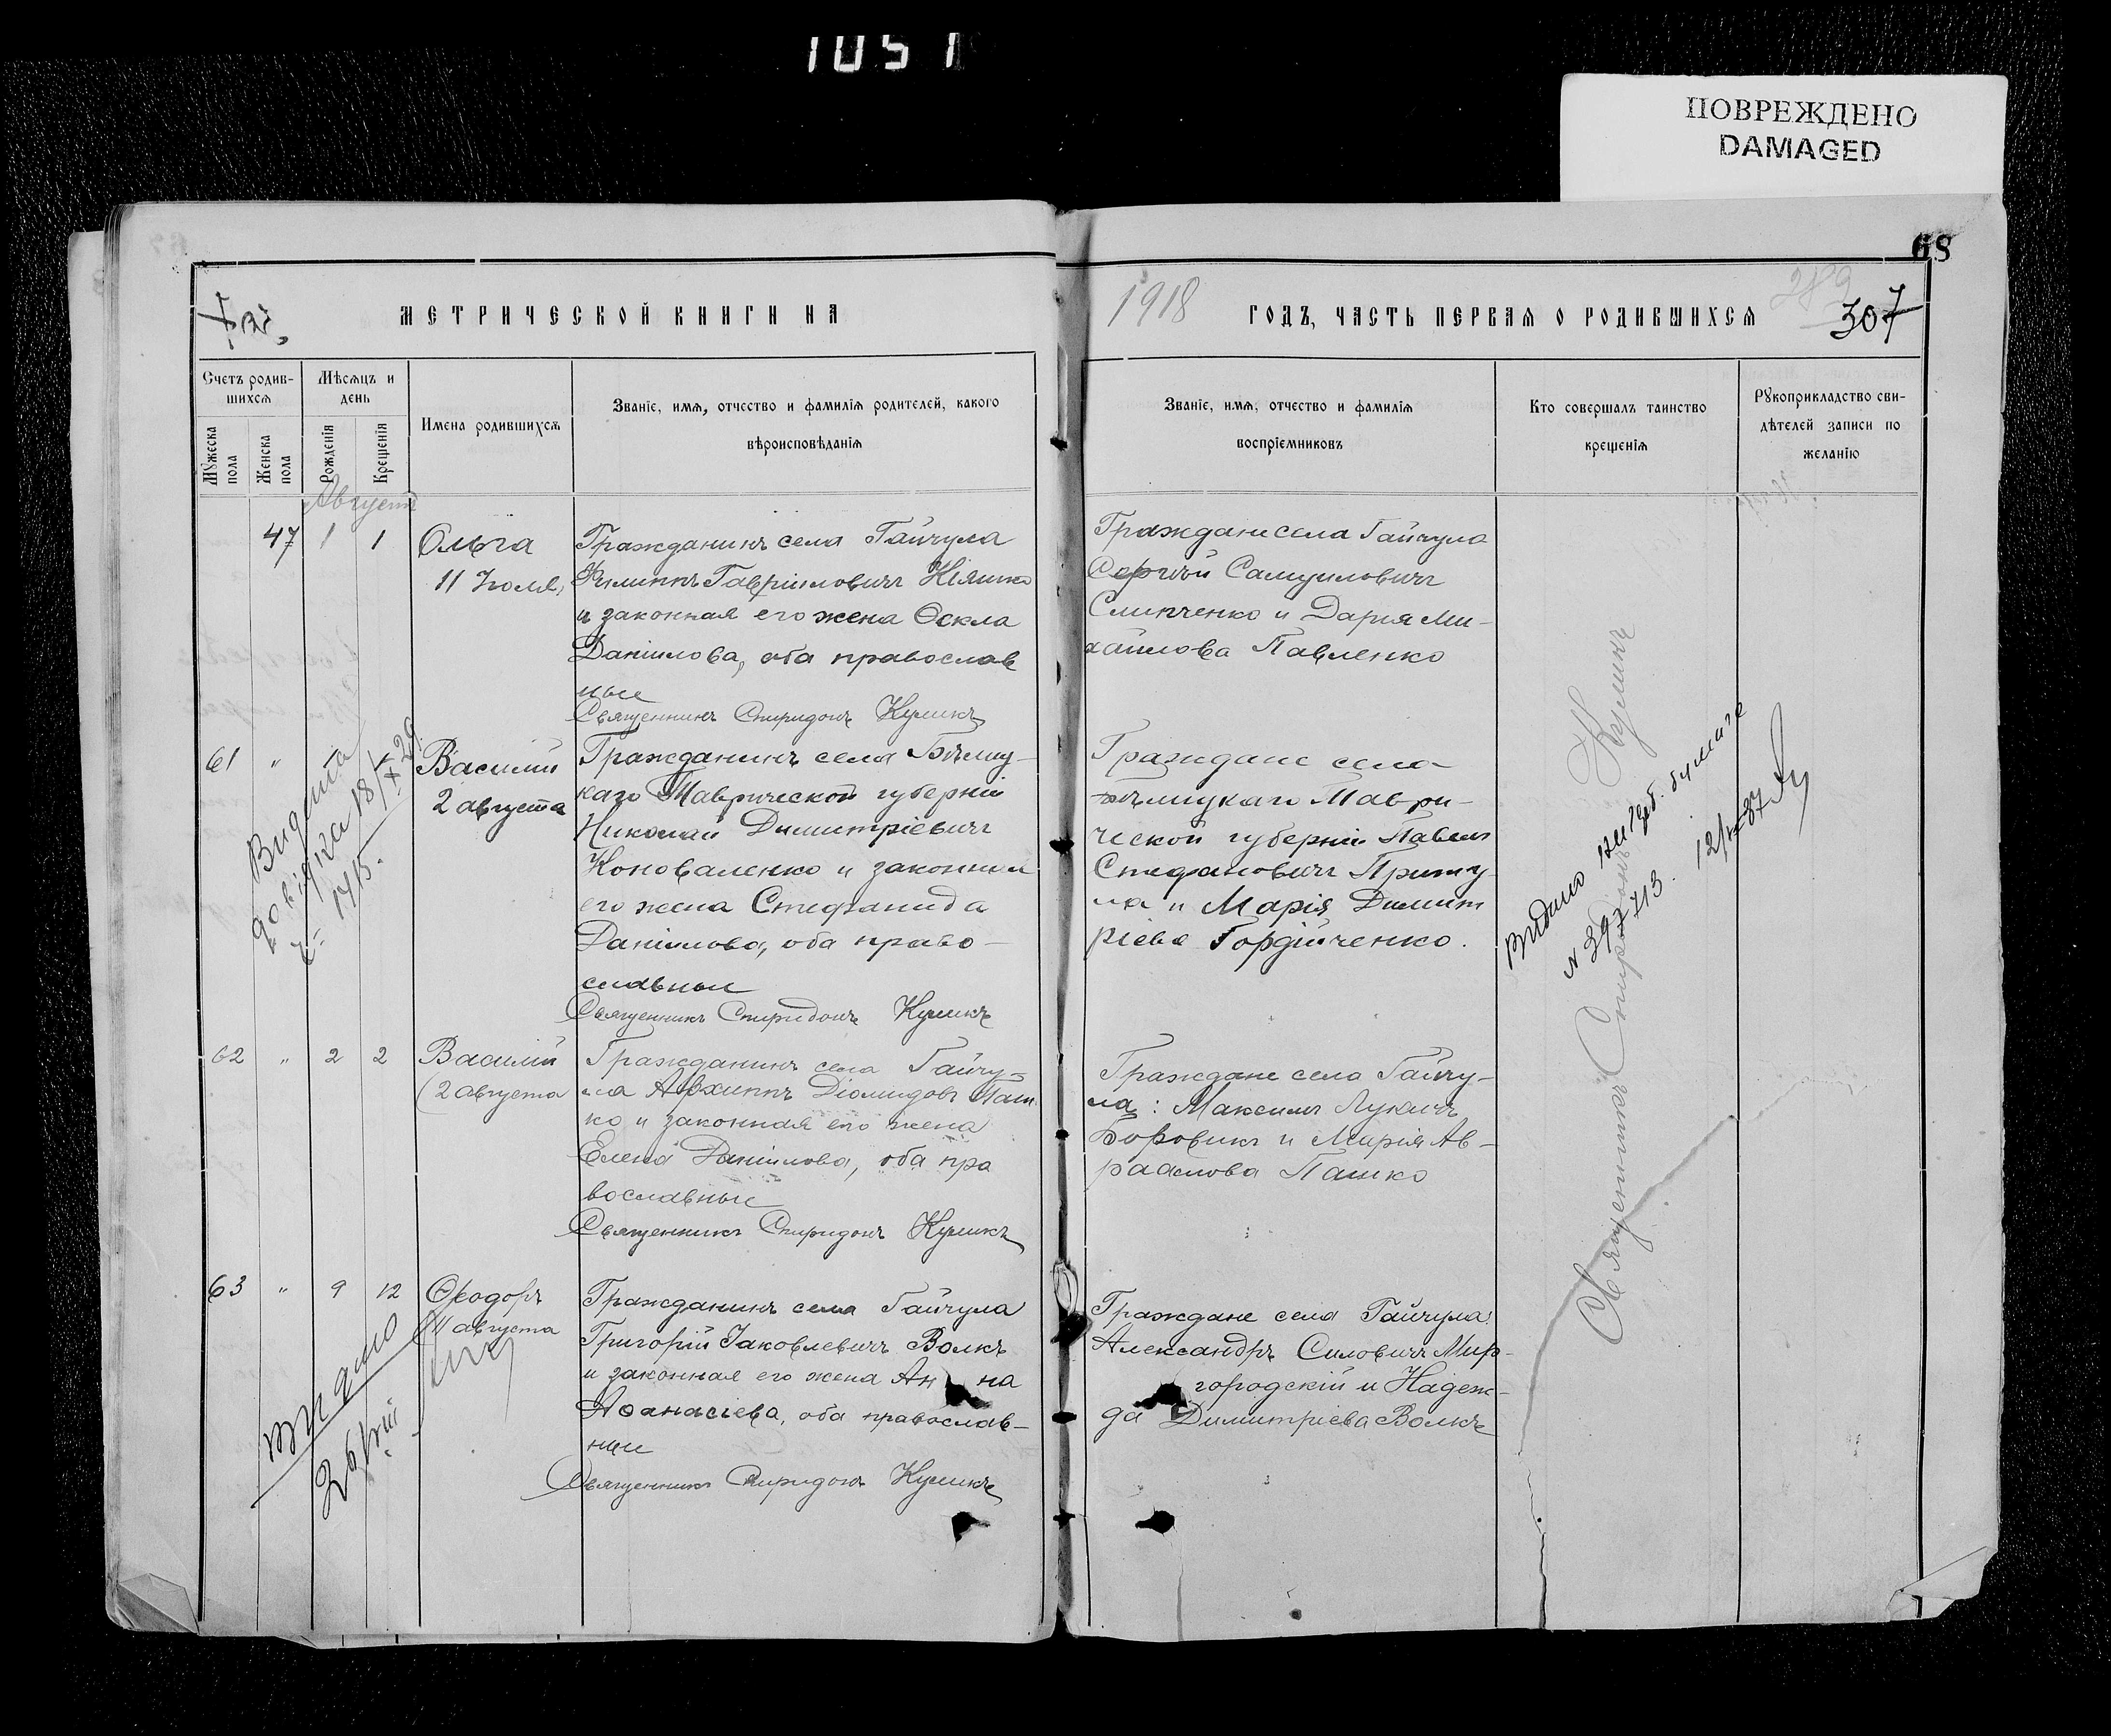 1051
ПОВРЕЖДЕНО
DAMAGED
68
МЕТРИЧЕСКОЙ КНИГИ НА
1918
ГОДЪ, ЧАСТЬ ПЕРВАЯ О РОДИВШИХСЯ
289
307
Счетъ родив-
шихся
Мѣсяцъ и
день
Мужеска
пола
Женска
пола
Рожденія
Крещенія
Имена родившихся
Званіе, имя, отчество и фамилія родителей, какого
вѣроисповѣданія
Званіе, имя, отчество и фамилія
воспріемниковъ
Кто совершалъ таинство
крещенія
Рукоприкладство сви-
дѣтелей записи по
желанію
Августъ
47 1 1 Ольга
11 Іюля,
Гражданинъ села Гайчула
Филиппъ Гавріиловичъ Кіяшко
и законная его жена Ѳекла
Даніилова, оба православ
ные
Священникъ Спиридонъ Куликъ
Граждане села Гайчула
Сергѣй Самуиловичъ
Слипченко и Дарія Ми-
хайлова Павленко
61 " Василій
2 августа
Гражданинъ села Бѣлиц-
каго Таврической губерніи
Николай Димитріевичъ
Коноваленко и законная
его жена Стефанида
Даніилова, оба право-
славные
Священникъ Спиридонъ Куликъ
Граждане села
Таври-
ческой губерніи Павелъ
Стефановичъ Приту
ла и Марія Димит
ріева Гордійченко.
Видата
довідка 18/IX 29
1715.
62 " 2 2 Василій
(2 августа
Гражданинъ села Гайчу-
ла Архиппъ Діомидовъ Паш
ко и законная его жена
Елена Даніилова, оба пра
вославные
Священникъ Спиридонъ Куликъ
Граждане села Гайчу-
ла: Максимъ Лукичъ
Боровикъ и Марія Ав-
раамова Пашко
63 " 9 12 Ѳеодоръ
11 августа
Гражданинъ села Гайчула
Григорій Іаковлевичъ Волкъ
и законная его жена Анна
Аѳанасіева, оба православ-
ные
Священникъ Спиридонъ Куликъ
Граждане села Гайчула:
Александръ Силовичъ Мир-
городскій и Надеж-
да Димитріева Волкъ
Видано
Священникъ Спиридонъ Куликъ
Видано
бумаге
N 397713.